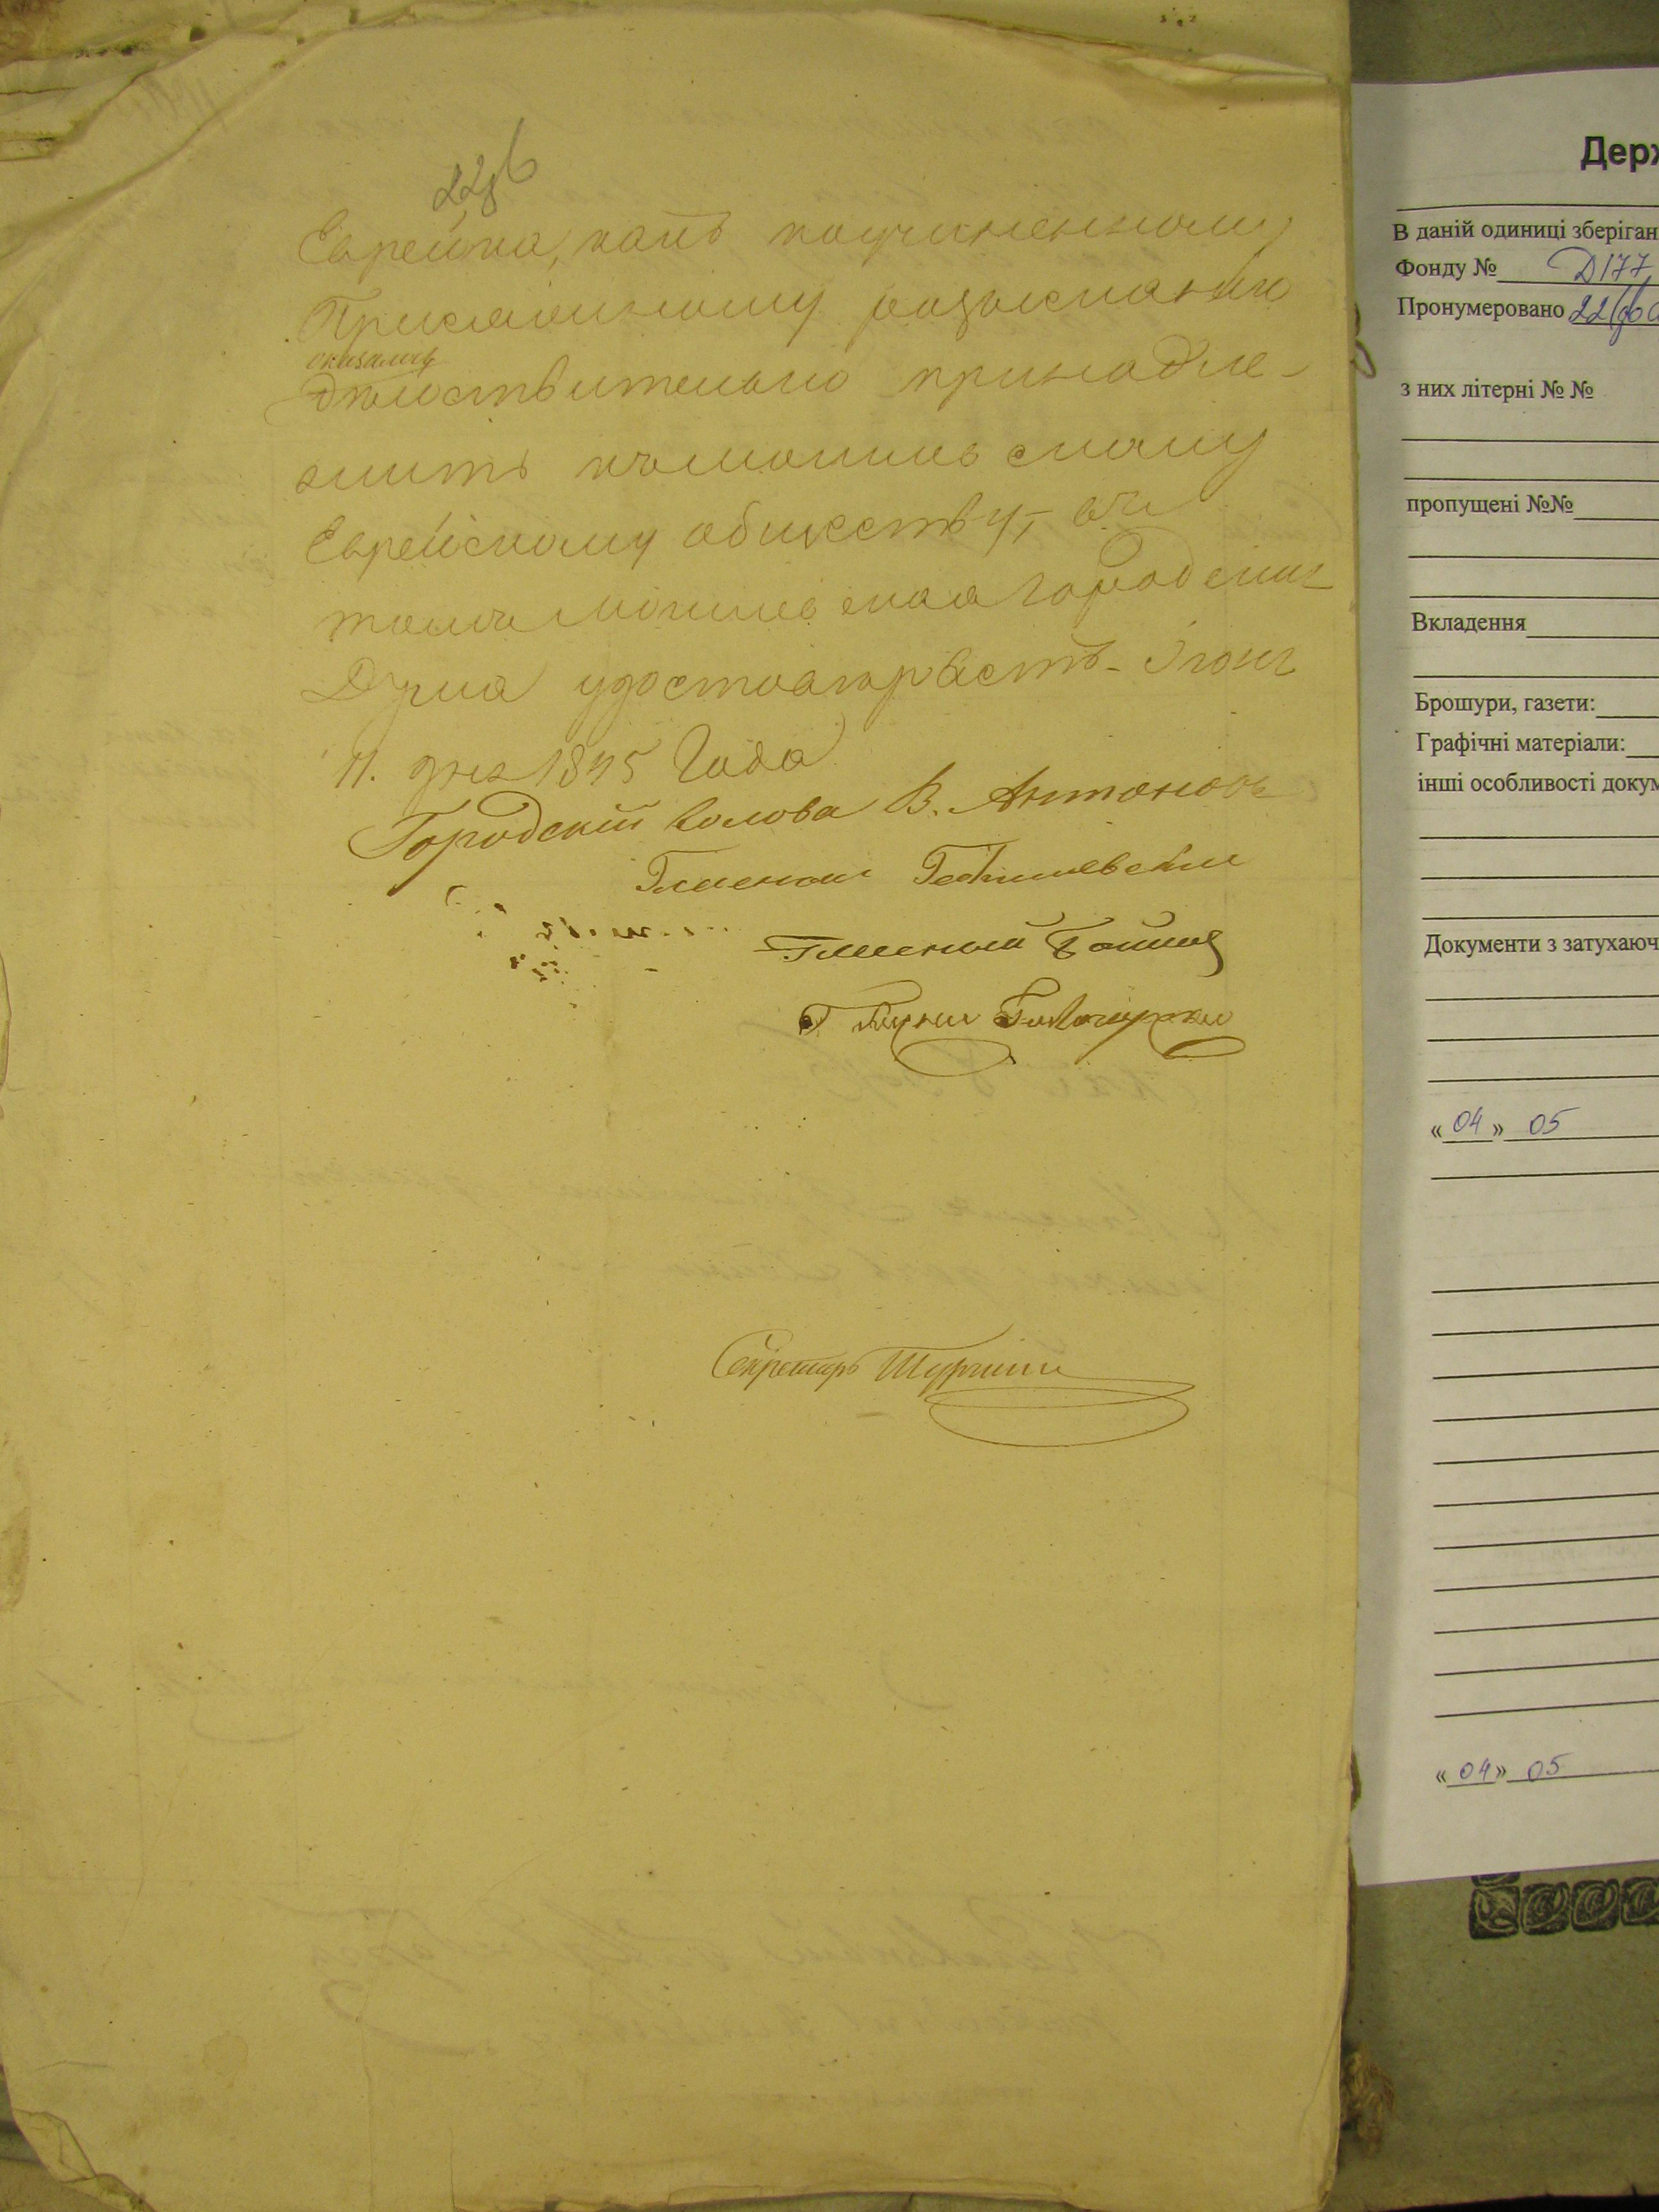 Еврейка, какъ поучиненному
розысканію
оказалось
действительно принадле-
жить кѣмогилевскому
Еврейскому обществу, вч
томъ Могилевская Городская
Дума удостоверяетъ. Іюня
11. дня 1845 Года
Городскій Голова В. Антоновъ
Гласный
Гласный
Секретарь
Держ
В даній одиниці зберіган
Фонду № Д177,
Пронумеровано 226
з них літерні № №
пропущені №№
Вкладення
Брошури, газети:
Графічні матеріали:
інші особливості докум
Документи з затухаюч
« 04 » 05
« 04 » 05